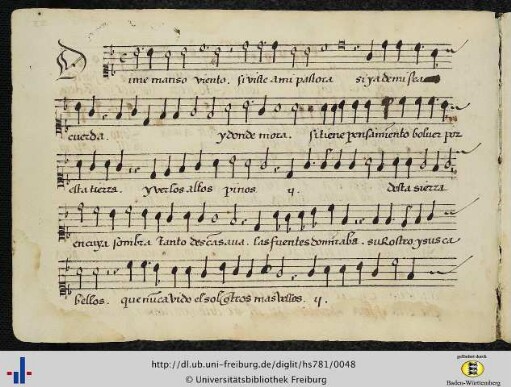 Dime manso viento. si viste a mi pastora si ya de mi sea
cuerda. y donde mora. si tiene pensamiento boluer por
esta tierra. y ver los altos pinos ij. desta sierra
en cuya sombra tanto descansaua. las fuentes do miraba. su Rostro y sus ca
bellos. que nunca vido el sol otros mas vellos. ij.
http://dl.ub.uni-freiburg.de/diglit/hs781/0048
© Universitätsbibliothek Freiburg
gefördert durch
Baden-Württemberg